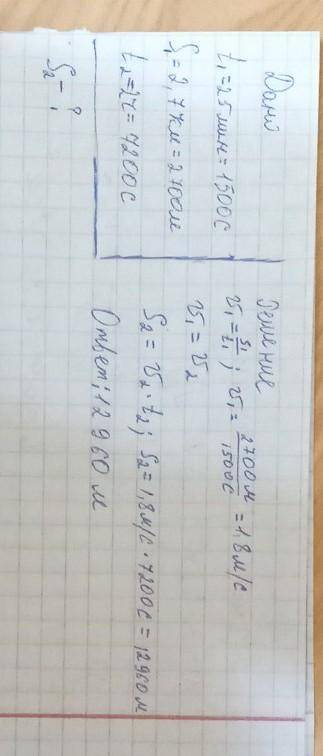 Дано
t₁=25мин=1500с
S₁=2,7км=2700м
t₂=2ч=7200с
S₂-?
Решение
v₁=S₁/t₁; v₁=2700м/1500с=1,8м/с
v₁=v₂
S₂=v₂·t₂; S₂=1,8м/с·7200с=12960м
Ответ: 12960м